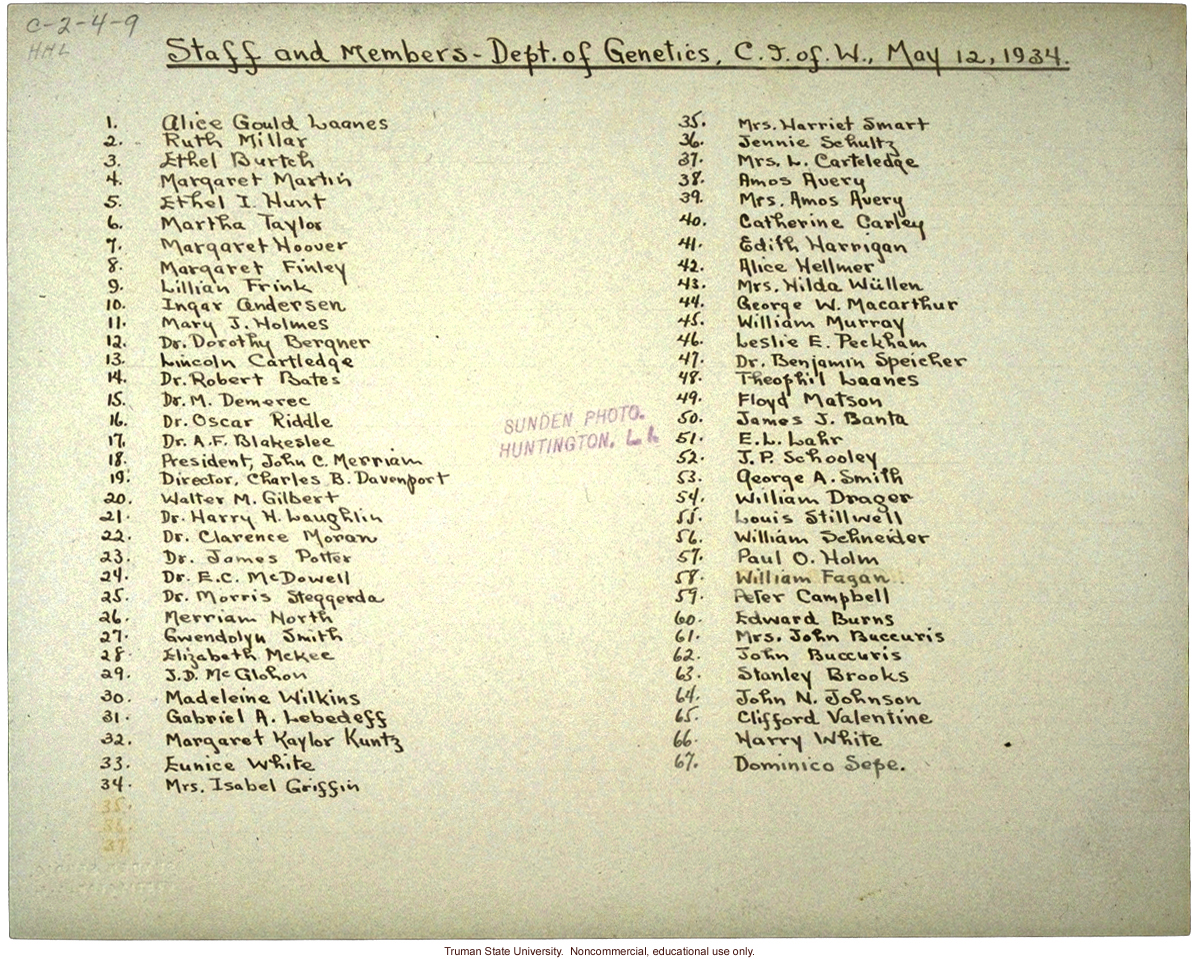 C-2-4-9
HHL
Staff and Members - Dept. of Genetics, C.I. of W., May 12, 1934.
1. Alice Gould Laanes
2. Ruth Millar
3. Ethel Burtch
4. Margaret Martin
5. Ethel I. Hunt
6. Martha Taylor
7. Margaret Hoover
8. Margaret Finley
9. Lillian Frink
10. Ingar Andersen
11. Mary J. Holmes
12. Dr. Dorothy Bergner
13. Lincoln Cartledge
14. Dr. Robert Bates
15. Dr. M. Demerec
16. Dr. Oscar Riddle
17. Dr. A.F. Blakeslee
18. President, John C. Merriam
19. Director, Charles B. Davenport
20. Walter M. Gilbert
21. Dr. Harry H. Laughlin
22. Dr. Clarence Moran
23. Dr. James Potter
24. Dr. E.C. McDowell
25. Dr. Morris Steggerda
26. Merriam North
27. Gwendolyn Smith
28. Elizabeth McKee
29. J.D. McGlohon
30. Madeleine Wilkins
31. Gabriel A. Lebedeff
32. Margaret Kaylor Kuntz
33. Eunice White
34. Mrs. Isabel Griffin
35.
36.
37.
35. Mrs. Harriet Smart
36. Jennie Schultz
37. Mrs. L. Carteledge
38. Amos Avery
39. Mrs. Amos Avery
40. Catherine Carley
41. Edith Harrigan
42. Alice Hellmer
43. Mrs. Hilda Wüllen
44. George W. Macarthur
45. William Murray
46. Leslie E. Peckham
47. Dr. Benjamin Speicher
48. Theophil Laanes
49. Floyd Matson
50. James J. Banta
51. E.L. Lahr
52. J.P. Schooley
53. George A. Smith
54. William Drager
55. Louis Stillwell
56. William Schneider
57. Paul O. Holm
58. William Fagan
59. Peter Campbell
60. Edward Burns
61. Mrs. John Buccuris
62. John Buccuris
63. Stanley Brooks
64. John N. Johnson
65. Clifford Valentine
66. Harry White
67. Dominico Sepe.
SUNDEN PHOTO.
HUNTINGTON, L.I.
Truman State University. Noncommercial, educational use only.